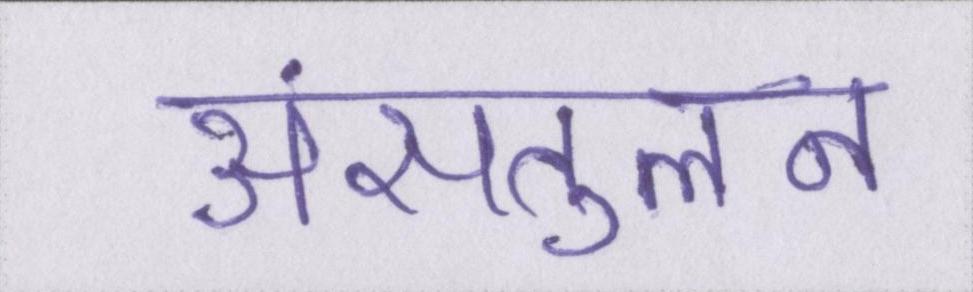 अंसतुलन